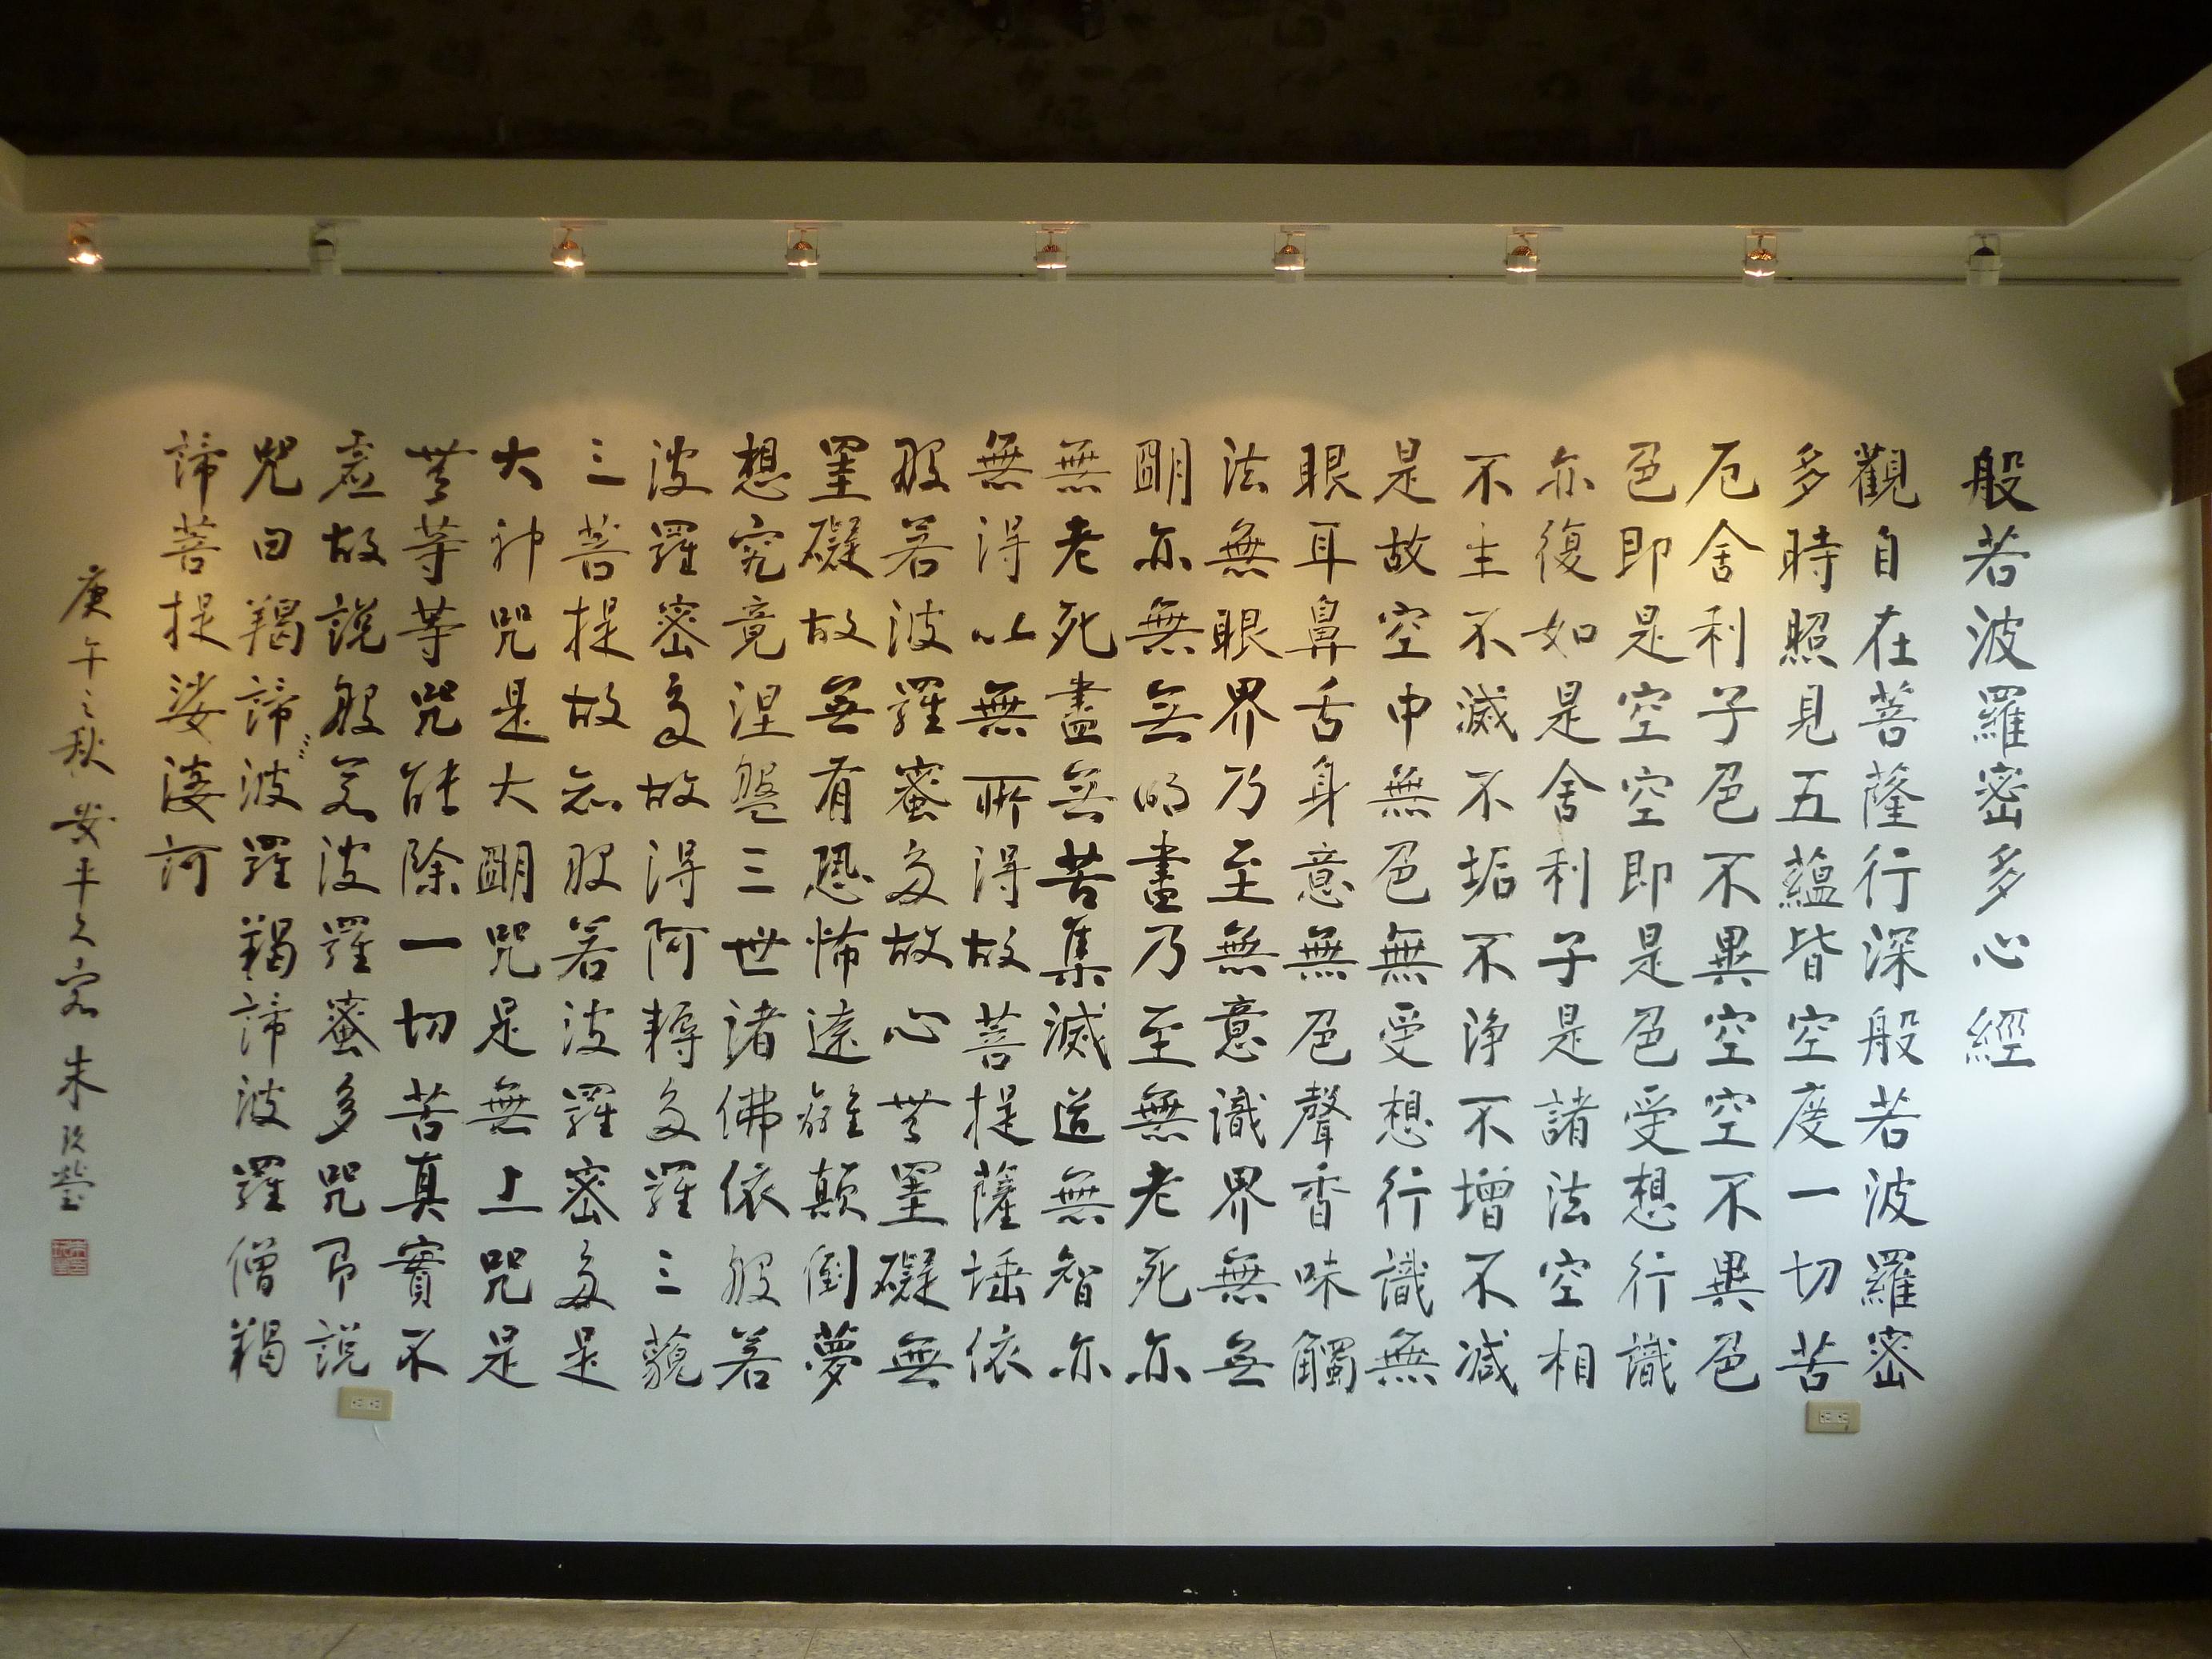 般若波羅密多心經
觀自在菩薩行深般若波羅密
多時照見五蘊皆空度一切苦
厄舍利子色不異空空不異色
色即是空空即是色受想行識
亦復如是舍利子是諸法空相
不生不滅不垢不淨不增不減
是故空中無色無受想行識無
眼耳鼻舌身意無色聲香味觸
法無眼界乃至無意識界無無
明亦無無明盡乃至無老死亦
無老死盡無苦集滅道無智亦
無得以無所得故菩提薩埵依
般若波羅蜜多故心無罣礙無
罣礙故無有恐怖遠離顛倒夢
想究竟涅盤三世諸佛依般若
波羅密多故得阿耨多羅三藐
三菩提故知般若波羅密多是
大神咒是大明咒是無上咒是
無等等咒能除一切苦真實不
虛故說般若波羅蜜多咒即說
咒曰羯諦〻波羅羯諦波羅僧羯
諦菩提娑婆訶
庚午之秋安平久客朱玖瑩